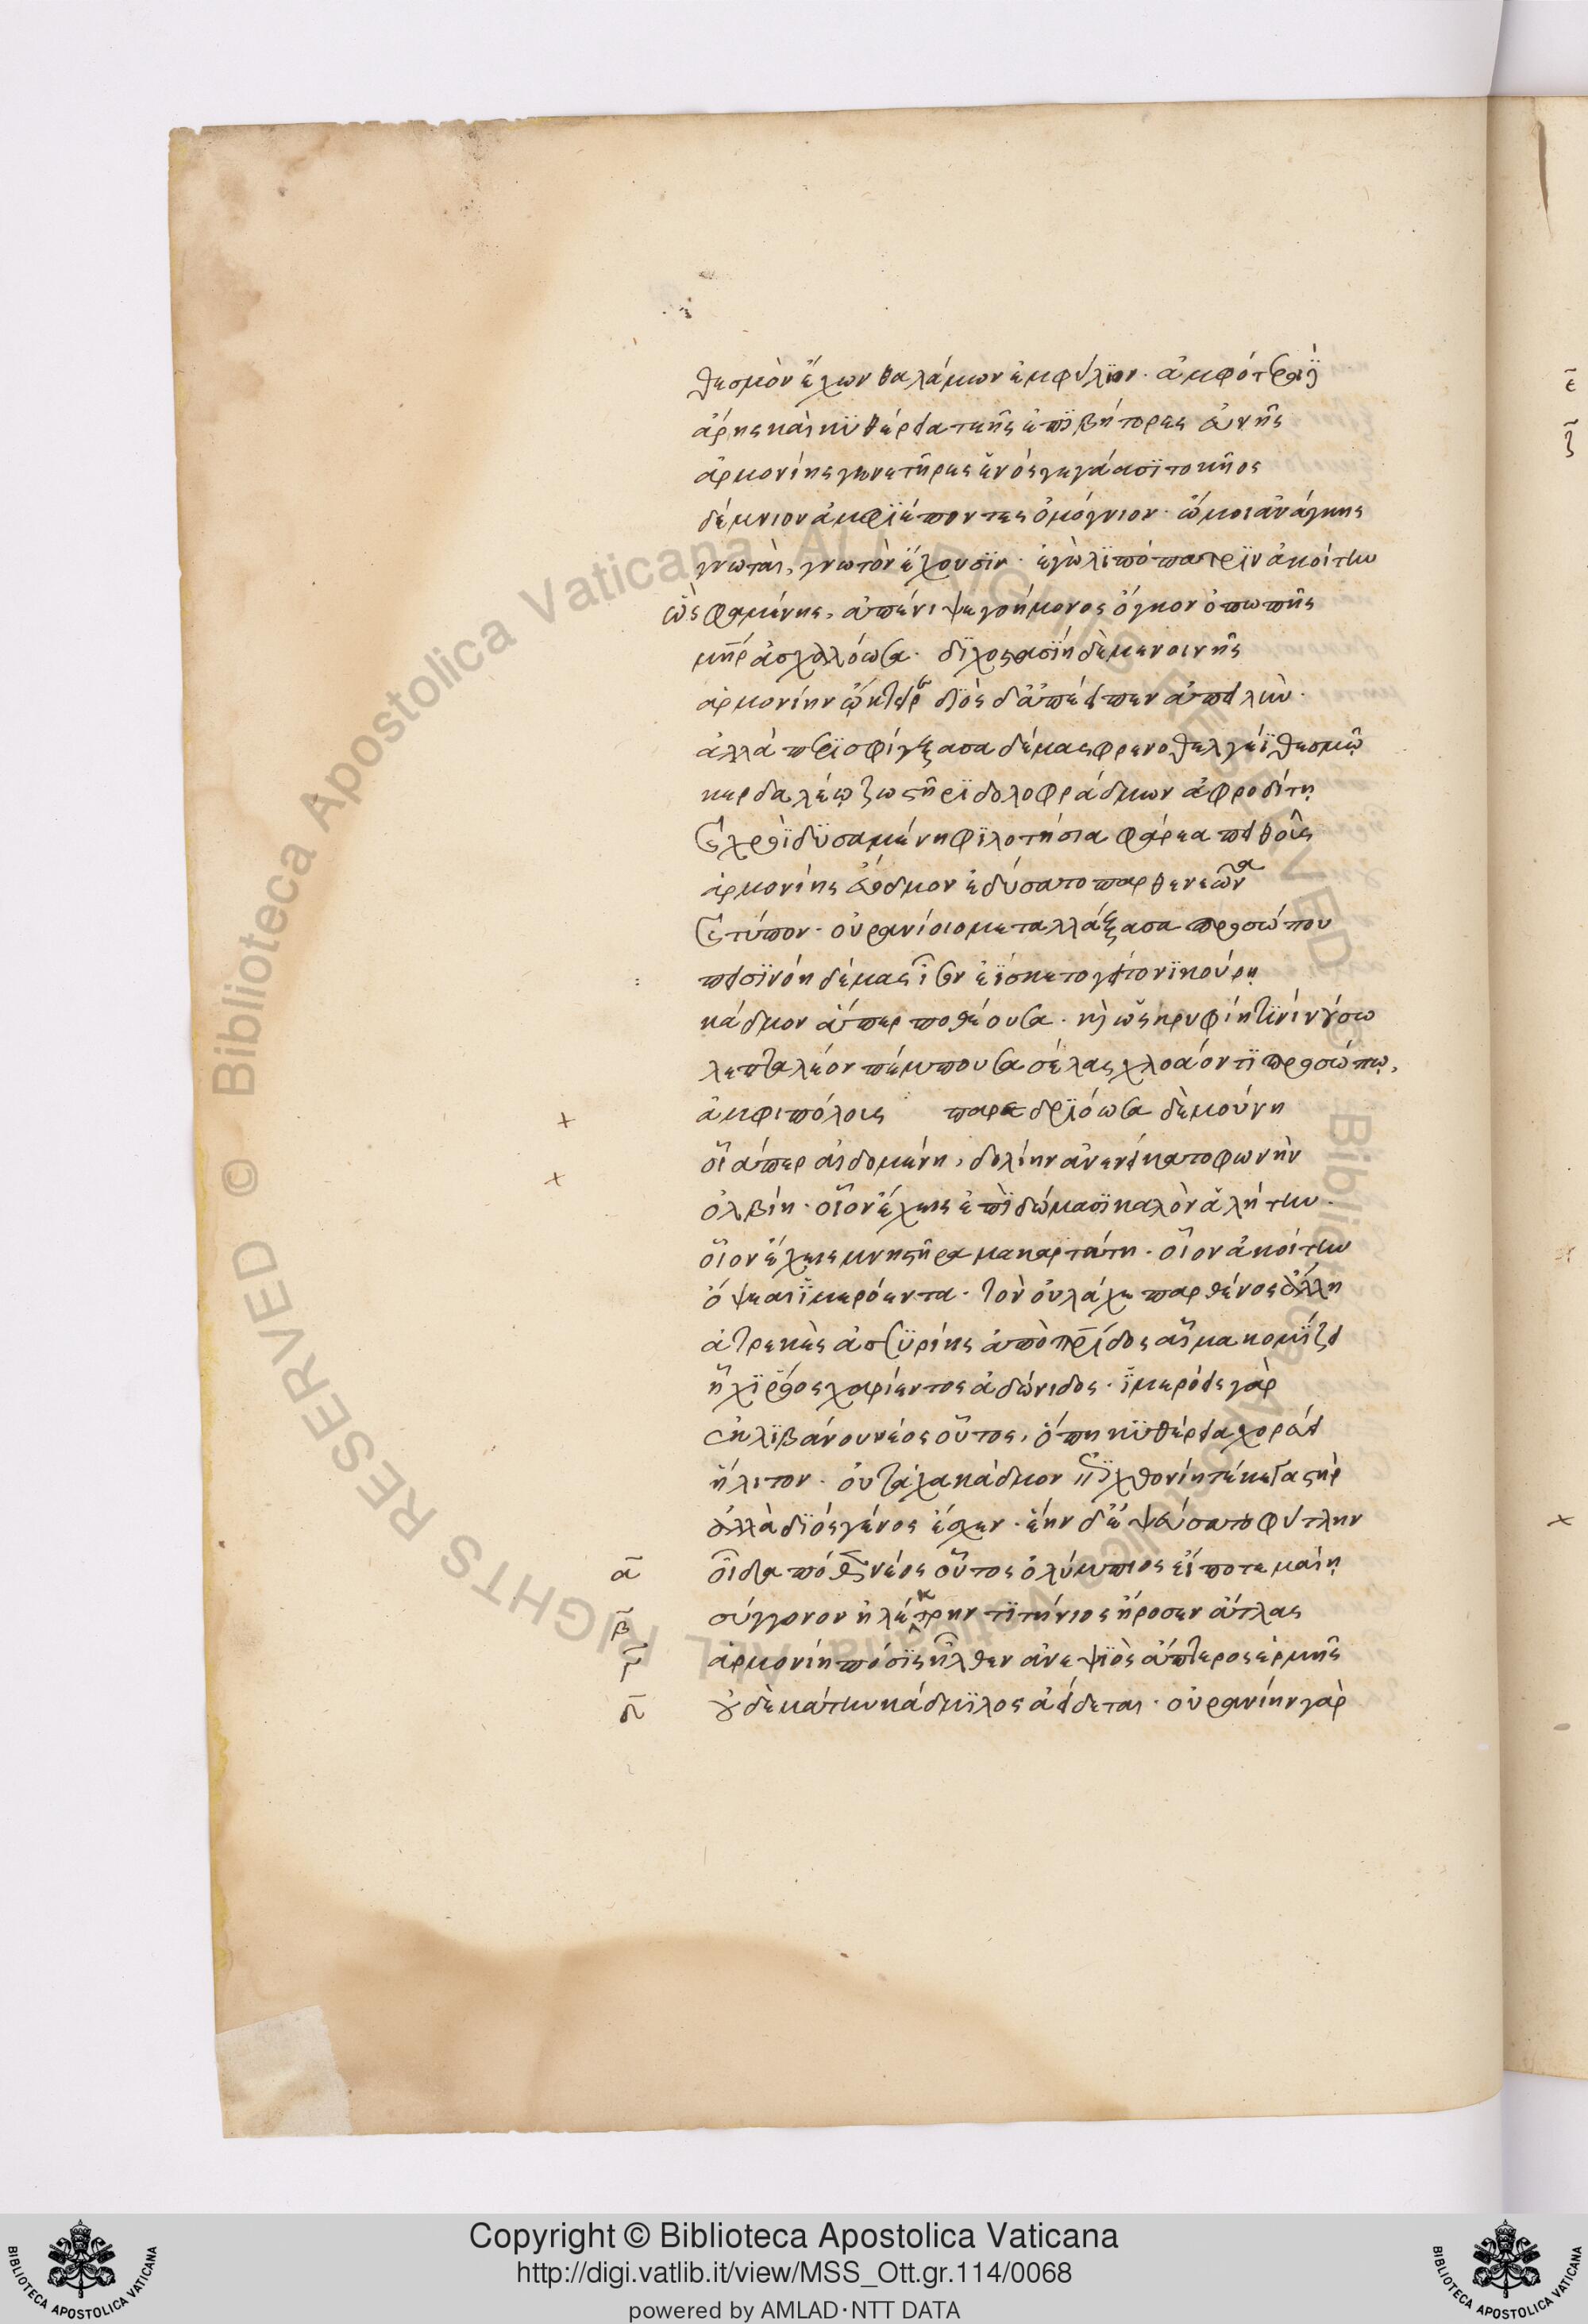 θεσμὸν ἔχων θαλάμων ἐμφύλιον· ἀμφότεροι
ἄρης καὶ κϋθέρεια τεῆς ἐπϊβήτορες εὐνῆς
ἁρμονίης γενετῆρες ἑνὸς γεγάασϊ τοκῆος
δέμνιον ἀμφϊέποντες ὁμόγνιον· ὤμοι ἀνάγκης
γνωταὶ, γνωτὸν ἔχουσϊν· ἐγὼ λϊπόπατρϊν ἀκοίτην
ὣς φαμένης, ἀπένιψε γοήμονος ὄγκον ὀπωπῆς
μήτηρ ἀσχαλόωσα· δϊχοστασίη δὲ μενοινῆς
ἁρμονίην ᾤκτειρε διὸς δ' ἀπέειπεν ἀπειλήν·
ἀλλὰ περϊσφίγξασα δέμας φρενοθελγέϊ θεσμῷ
κερδαλέῳ ζωστῆρϊ δολοφράδμων ἀφροδίτη
καὶ χροῒ δϋσαμένη φϊλοτήσια φάρεα πειθοῦς
ἁρμονίης εὔοδμον ἐδύσατο παρθενεῶνα
καὶ τύπον· οὐρανίοιο μεταλλάξασα προσώπου
πεισϊνόη δέμας ἶσον ἐΐσκετο γείτονϊ κούρῃ
κάδμον ἅπερ ποθέουσα· καὶ ὡς κρυφίη τϊνὶ νούσῳ
λεπταλέον πέμπουσα σέλας χλοάοντϊ προσώπῳ,
ἀμφιπόλοις παρεδρϊόωσα δὲ μούνη
οἷάπερ αἰδομένη, δολίην ἀνενείκατο φωνὴν
ὀλβίη· οἷον ἔχεις ἐπῒ δώμασϊ καλὸν ἀλήτην·
οἷον ἔχεις μνηστῆρα μακαρτάτη· οἷον ἀκοίτην
ὄψεαι ἱμερόεντα· τὸν οὐ λάχε παρθένος ἄλλη
ἀτρεκὲς ἀσσϋρίης ἀπὸ πατρίδος αἷμα κομίζει
ἠχϊ ῥόος χαρίεντος ἀδώνιδος· ἱμερόεις γὰρ
ἐκ λϊβάνου νέος οὗτος, ὅπη κϋθέρεια χορεύει
ἤλιτον· οὐ τάχα κάδμον ἐπιχθονίη τέκε γαστὴρ
ἀλλὰ δϊὸς γένος ἔσχεν· ἑὴν δ' ἐψεύσατο φύτλην
α οἶδα πόθεν νέος οὗτος ὀλύμπιος εἴ ποτε μαίῃ
β σύγγονον ἠλέκτρην τϊτήνιος ἤροσεν ἄτλας
γ ἁρμονίη πόσϊς ἦλθεν ἀνεψϊὸς ἄπτερος ἑρμῆς
δ οὐδὲ μάτην κάδμϊλος ἀείδεται· οὐρανίην γὰρ
ε
ζ
Copyright © Biblioteca Apostolica Vaticana
http://digi.vatlib.it/view/MSS_Ott.gr.114/0068
powered by AMLAD·NTT DATA
BIBLIOTECA APOSTOLICA VATICANA
BIBLIOTECA APOSTOLICA VATICANA
Biblioteca Apostolica Vaticana ALL RIGHTS RESERVED ©
Biblioteca Apostolica Vaticana ALL RIGHTS RESERVED ©